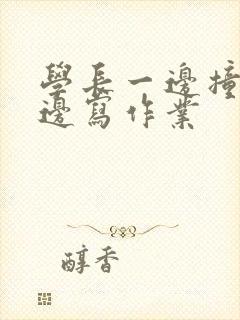 學長一邊撞
邊寫作業
醇香